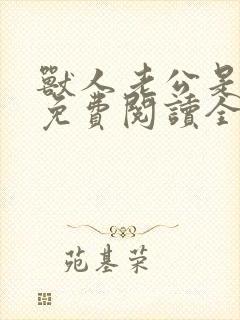 獸人老公是
免費閱讀全
苑基荣